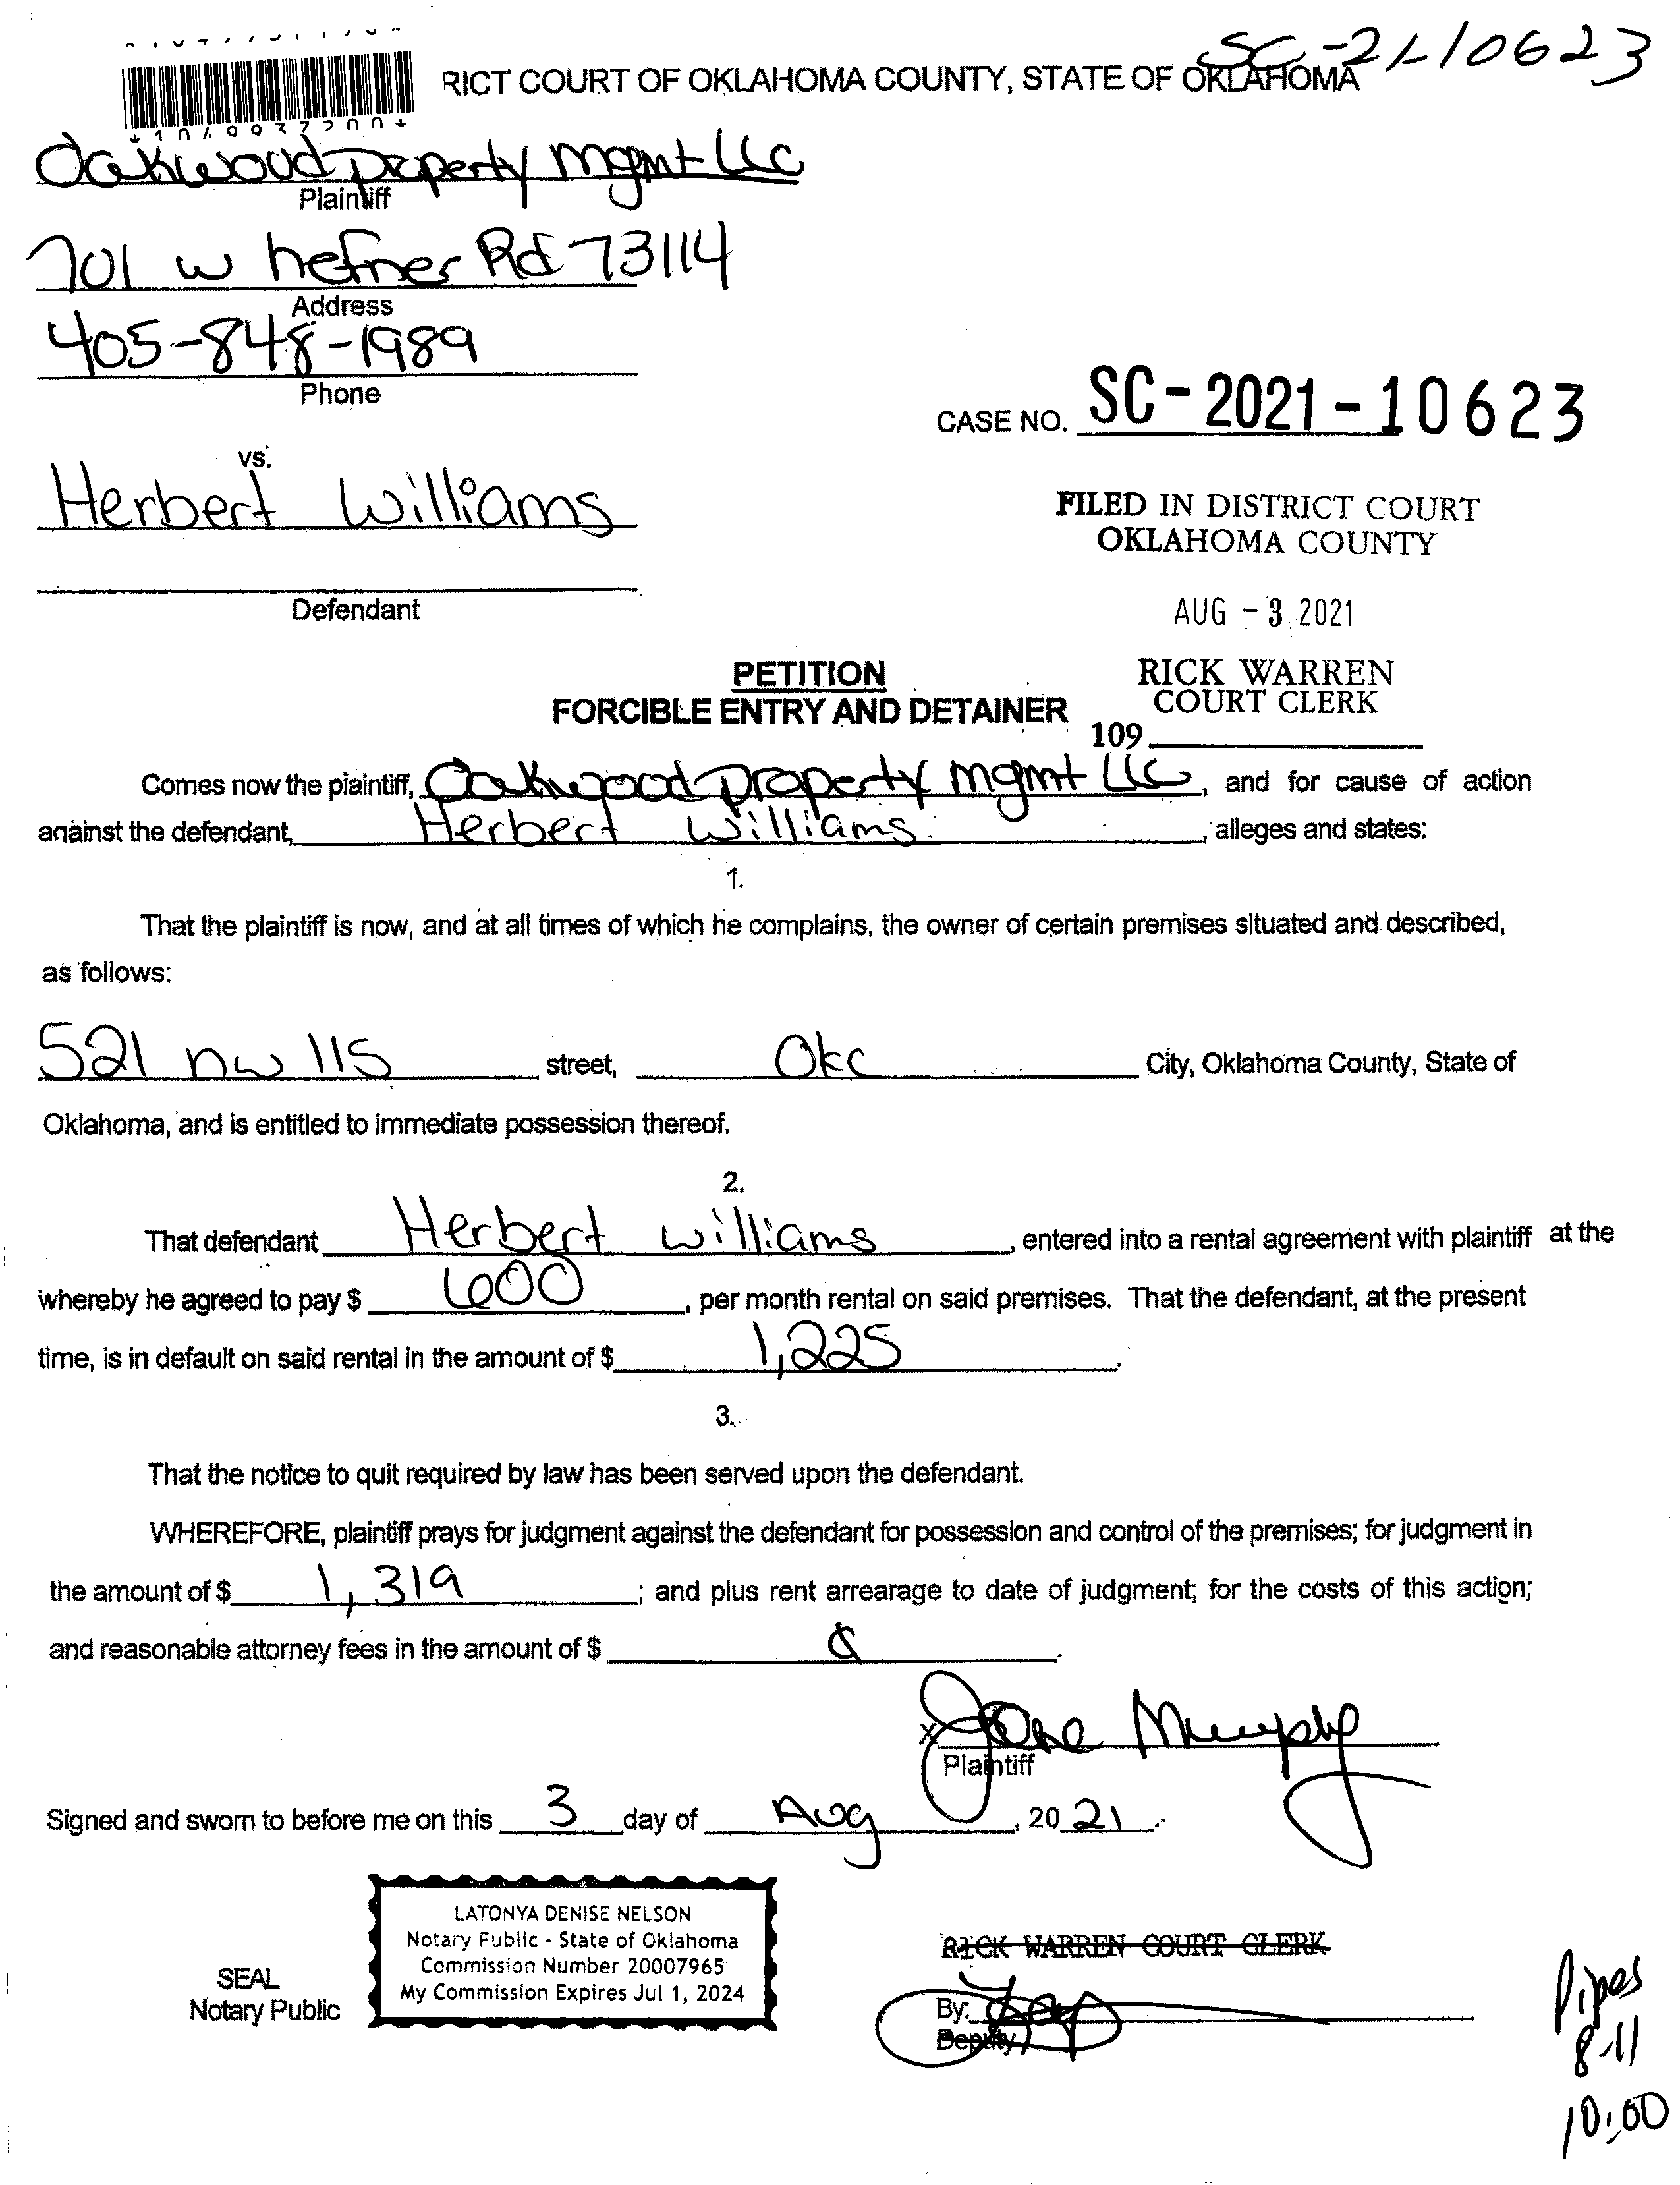 SC-21-10623
RICT COURT OF OKLAHOMA COUNTY, STATE OF OKLAHOMA
Oakwood Property Mgmt LLC
Plaintiff
701 w hefner Rd 73114
Address
405-848-1989
Phone
CASE NO. SC-2021-10623
vs.
Herbert Williams
FILED IN DISTRICT COURT
OKLAHOMA COUNTY
Defendant
AUG - 3 2021
PETITION
RICK WARREN
COURT CLERK
FORCIBLE ENTRY AND DETAINER
109
Comes now the plaintiff, Oakwood Property Mgmt LLC, and for cause of action
against the defendant, Herbert Williams, alleges and states:
1.
That the plaintiff is now, and at all times of which he complains, the owner of certain premises situated and described,
as follows:
521 nw 115 street, Okc City, Oklahoma County, State of
Oklahoma, and is entitled to immediate possession thereof.
2.
That defendant Herbert Williams, entered into a rental agreement with plaintiff at the
whereby he agreed to pay $ 600, per month rental on said premises. That the defendant, at the present
time, is in default on said rental in the amount of $ 1,225.
3.
That the notice to quit required by law has been served upon the defendant.
WHEREFORE, plaintiff prays for judgment against the defendant for possession and control of the premises; for judgment in
the amount of $ 1,319; and plus rent arrearage to date of judgment; for the costs of this action;
and reasonable attorney fees in the amount of $
x Jane Murphy
Plaintiff
Signed and sworn to before me on this 3 day of Aug, 20 21.
LATONYA DENISE NELSON
Notary Public - State of Oklahoma
Commission Number 20007965
My Commission Expires Jul 1, 2024
SEAL
Notary Public
RICK WARREN COURT CLERK
By:
Deputy
Pipes
8-11
10:00